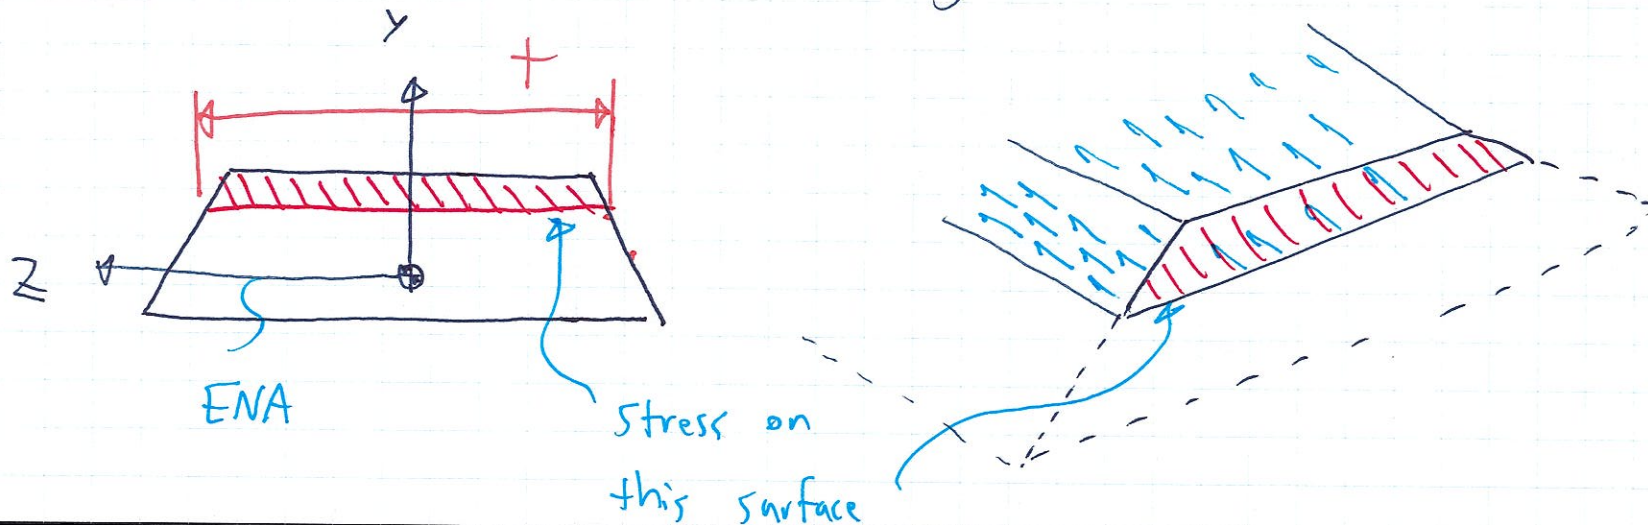 y
t
Z
ENA
stress on
this surface